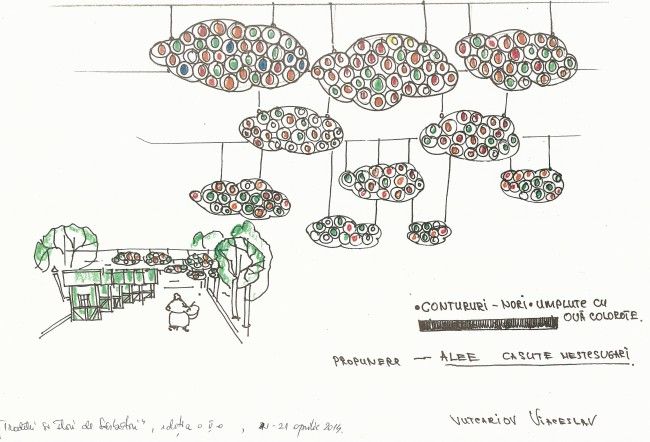 •CONTURURI-NORI•UMPLUTE CU
OUĂ COLORATE.
PROPUNERE — ALEE CASUTE MESTESUGARI
si Flori de , ediția a II-a, -21 aprilie 2014.
VUTCARIOV VIACESLAV